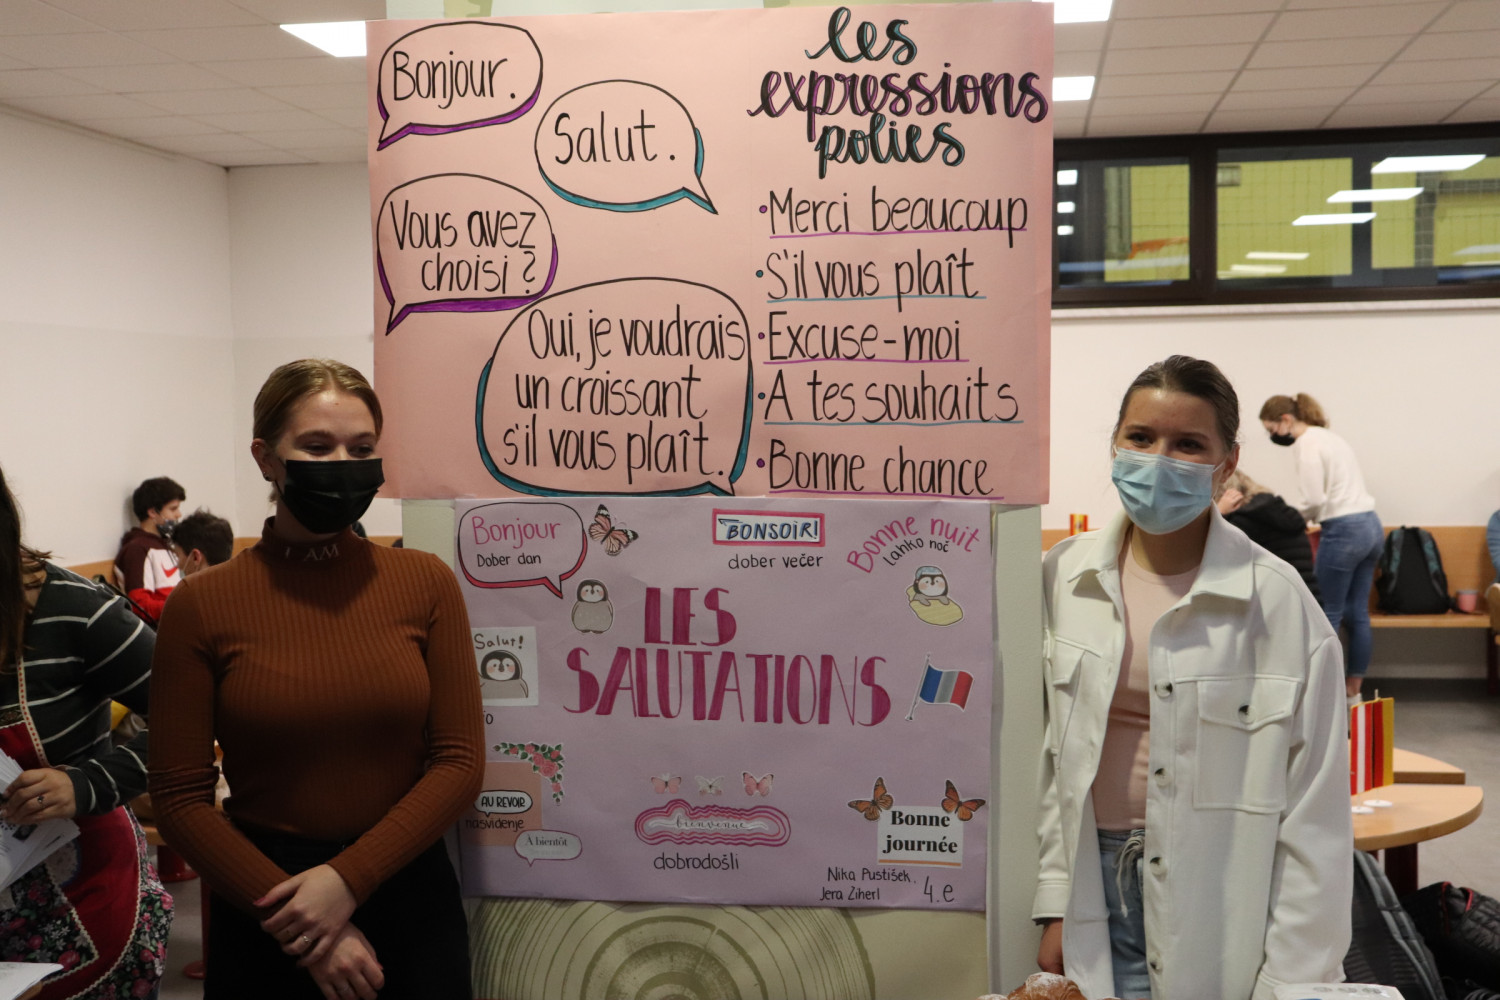 Bonjour.
Salut.
Vous avez
choisi ?
Oui, je voudrais
un croissant
s'il vous plaît.
les
expressions
polies
•Merci beaucoup
•S'il vous plaît
•Excuse-moi
•A tes souhaits
•Bonne chance
Bonjour
Dober dan
BONSOIR!
dober večer
Bonne nuit
lahko noč
Salut!
LES
SALUTATIONS
AU REVOIR
nasvidenje
À bientôt
bienvenue
dobrodošli
Bonne
journée
Nika Pustišek,
Jera Ziherl 4.e
I AM